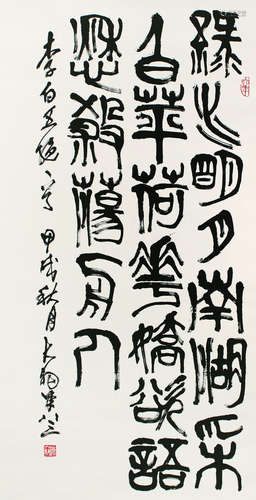 綠水明月南湖采
白苹荷花嬌欲語
愁殺蕩舟人
李白五絕一首 甲戌秋月